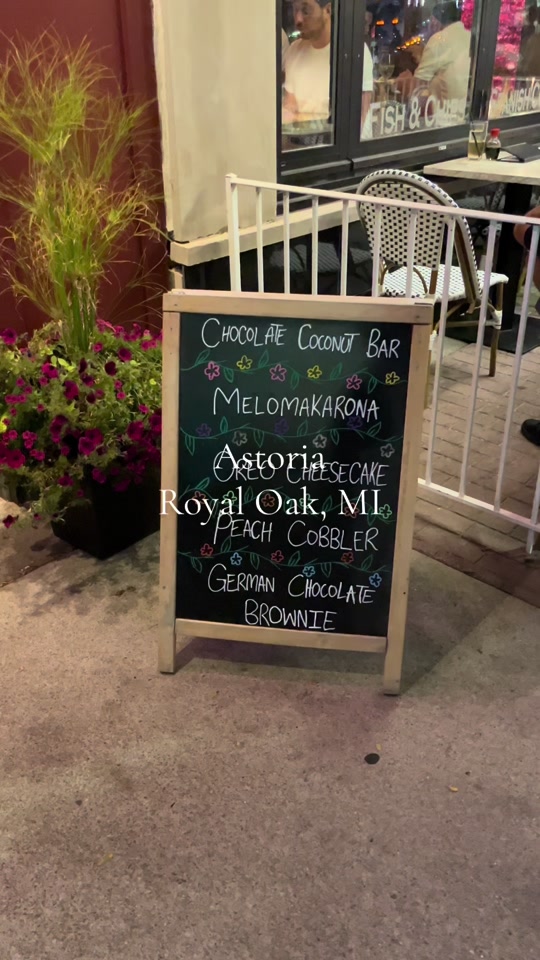 FISH & CHI
CHOCOLATE COCONUT BAR
MELOMAKARONA
OREO CHEESECAKE
PEACH COBBLER
GERMAN CHOCOLATE
BROWNIE
Astoria
Royal Oak, MI